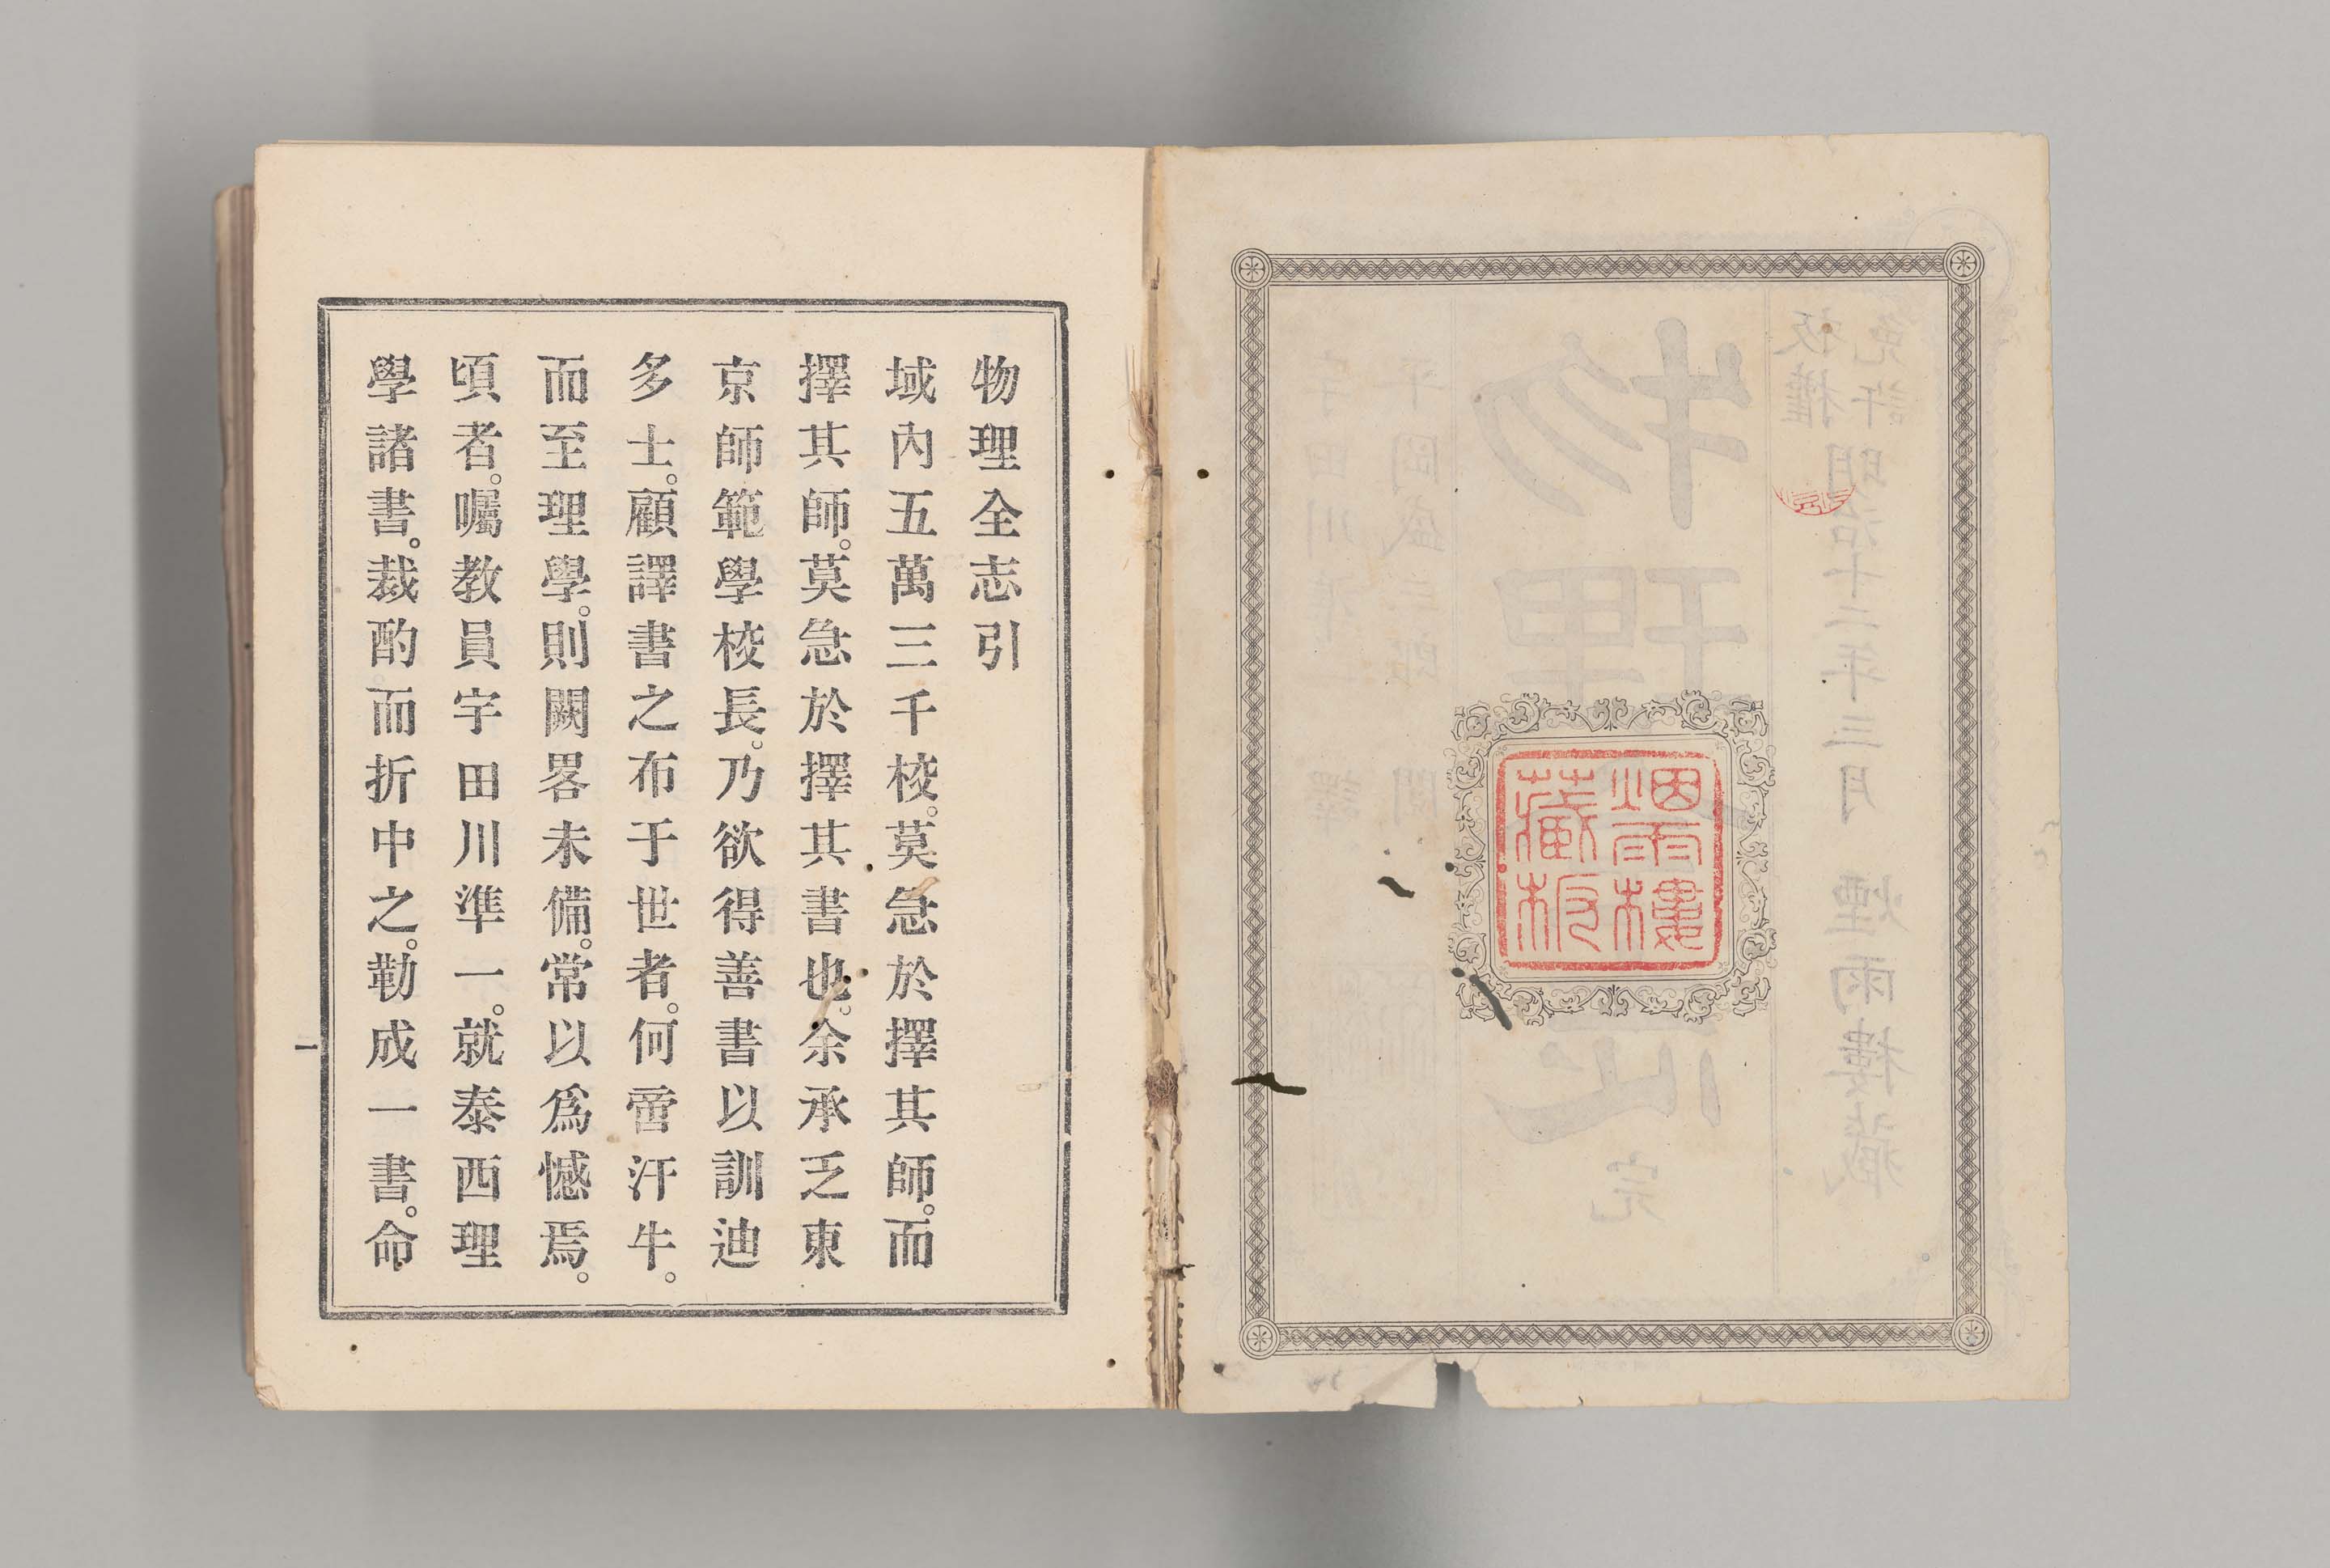 烟雨樓
藏板
物理全志引
域內五萬三千校。莫急於擇其師。而
擇其師。莫急於擇其書也。余承乏東
京師範學校長。乃欲得善書以訓迪
多士。顧譯書之布于世者。何啻汗牛。
而至理學。則闕畧未備。常以爲憾焉。
頃者。囑教員宇田川準一。就泰西理
學諸書。裁酌而折中之。勒成一書。命
一